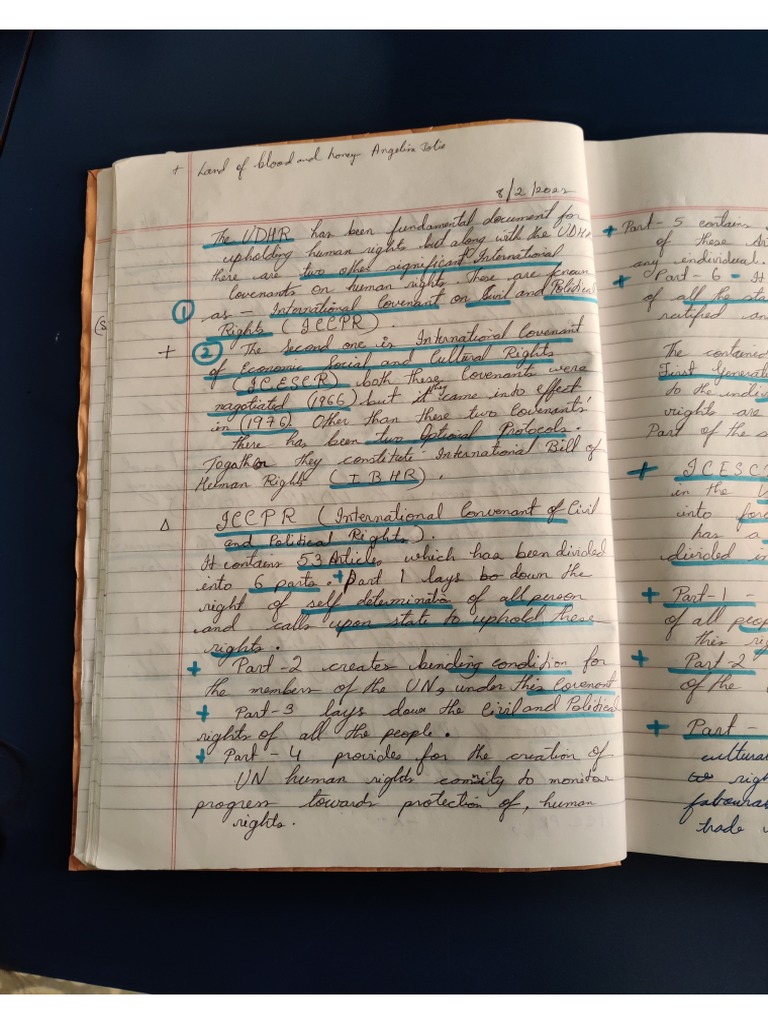 + Land of blood and honey - Angelina Jolie
8/2/2022
The UDHR has been fundamental document for
upholding human rights but along with the UDHR
there are two other significant International
Covenants on human rights. These are known
① as - International Covenant on Civil and Political
Rights (ICCPR).
+ ② The Second one is International Covenant
of Economic Social and Cultural Rights
(ICESCR) both these Covenants were
negotiated (1966) but it they came into effect
in (1976). Other than these two Covenants'
there has been two Optional Protocols.
Together they constitute International Bill of
Human Rights (IBHR).
Δ ICCPR (International Convenant of Civil
and Political Rights).
It contains 53 Articles which has been divided
into 6 parts. + Part 1 lays bo down the
right of self determination of all person
and calls upon state to uphold these
rights.
+ Part-2 creates bending condition for
the members of the UN, under this Covenant
+ Part-3 lays down the Civil and Political
rights of all the people.
+ Part - 4 provides for the creation of
UN human rights to monitor
progress towards protection of, human
rights.
+ Part - 5 contains
of these
any individual.
+ Part - 6 - It
of all the sta
ratified an
The contained
First Generat
to the indiv
rights are
Part of the s
+ ICESC
in the
into for
has a
divided in
+ Part-1 -
of all peop
this rig
+ Part 2
of the
+ Part -
cultura
rig
favoura
trade